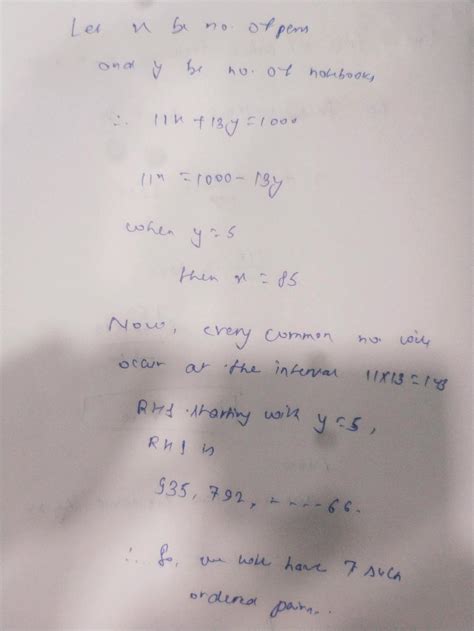 Let x be no. of pens
and y be no. of notebooks
∴ 11x + 13y = 1000
11x = 1000 - 13y
when y = 5
then x = 85
Now, every common no will
occur at the interval 11x13 = 143
RHS starting with y = 5,
RHS is
935, 792, ----- 66.
∴ So, we will have 7 such
ordered pairs..